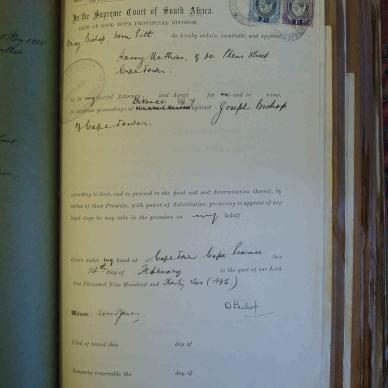 In the Supreme Court of South Africa.
CAPE OF GOOD HOPE PROVINCIAL DIVISION.
Bishop, born Pitt do hereby ordain, nominate, and appoint
Harry Nathan, of 50 Plein Street
Cape Town.
to be my lawful Attorney and Agent for me and in name,
to institute proceedings of Divorce against Joseph Bishop
of Cape Town.
according to Law, and to proceed to the final end and determination thereof, by
virtue of these Presents, with power of Substitution, promising to approve of any
legal steps he may take in the premises on my behalf
Given under my hand at Cape Town Cape Province this
14th Day of February in the year of our Lord
One Thousand Nine Hundred and Thirty
Witness:
D Bishop
Filed of record this day of
Summons returnable the day of